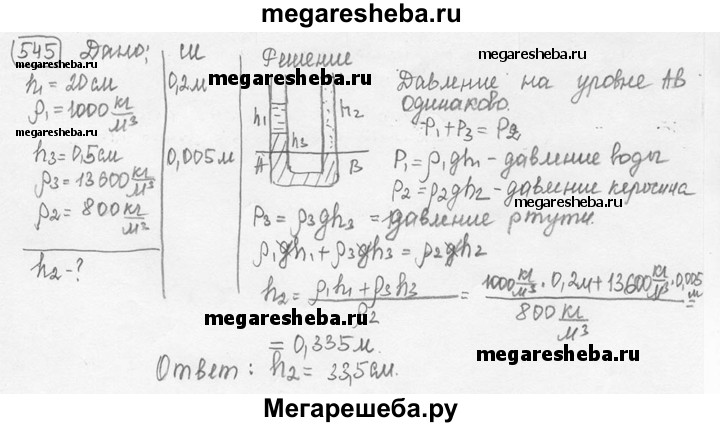 megaresheba.ru
545 Дано; СИ Решение
megaresheba.ru
h₁ = 20 см 0,2м
megaresheba.ru
ρ₁ = 1000 кг/м³
megaresheba.ru
h₃ = 0,5 см 0,005 м
ρ₃ = 13600 кг/м³
ρ₂ = 800 кг/м³
h₂ - ?
h₁ h₂ h₃
A B
Давление на уровне АВ
одинаково.
P₁ + P₃ = P₂
P₁ = ρ₁gh₁ - давление воды
P₂ = ρ₂gh₂ - давление керосина
megaresheba.ru
P₃ = ρ₃gh₃ = давление ртути.
ρ₁gh₁ + ρ₃gh₃ = ρ₂gh₂
h₂ = (ρ₁h₁ + ρ₃h₃)/ρ₂ = (1000 кг/м³ · 0,2м + 13600 кг/м³ · 0,005 м)/(800 кг/м³) =
megaresheba.ru
= 0,335 м.
megaresheba.ru
Ответ: h₂ = 33,5 см.
Мегарешеба.ру